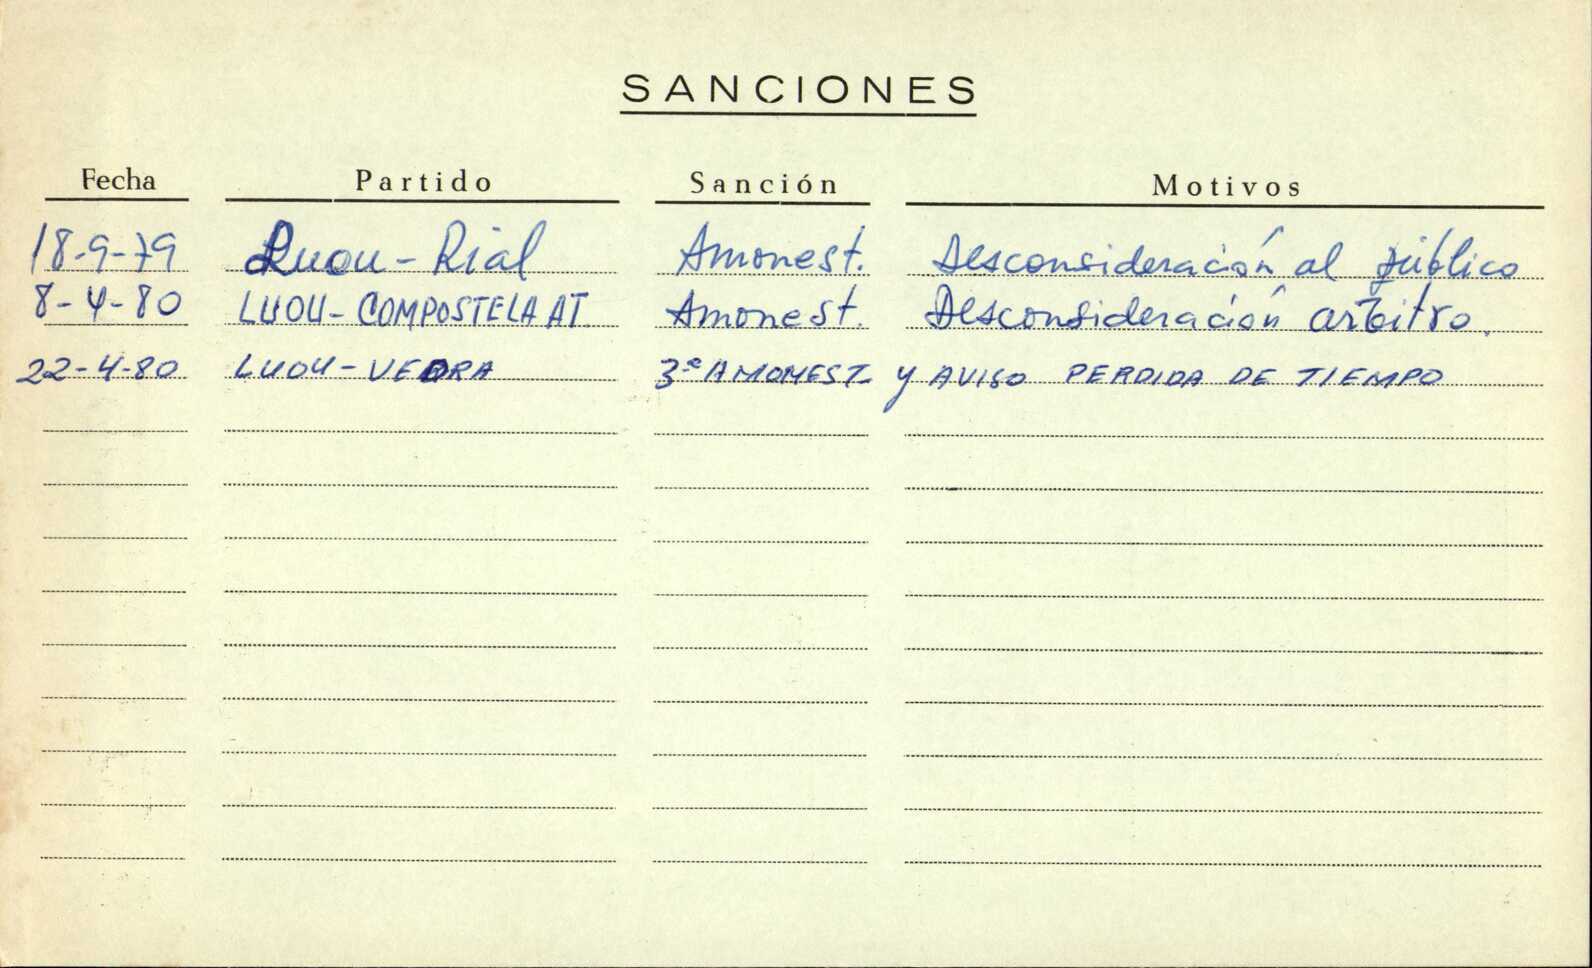 SANCIONES
Fecha Partido Sanción Motivos
18-9-79 Luou - Rial Amonest. Desconsideración al público
8-4-80 LUOU - COMPOSTELA AT Amonest. Desconsideración arbitro.
22-4-80 LUOU - VEDRA 3ª AMONEST. y AVISO PERDIDA DE TIEMPO